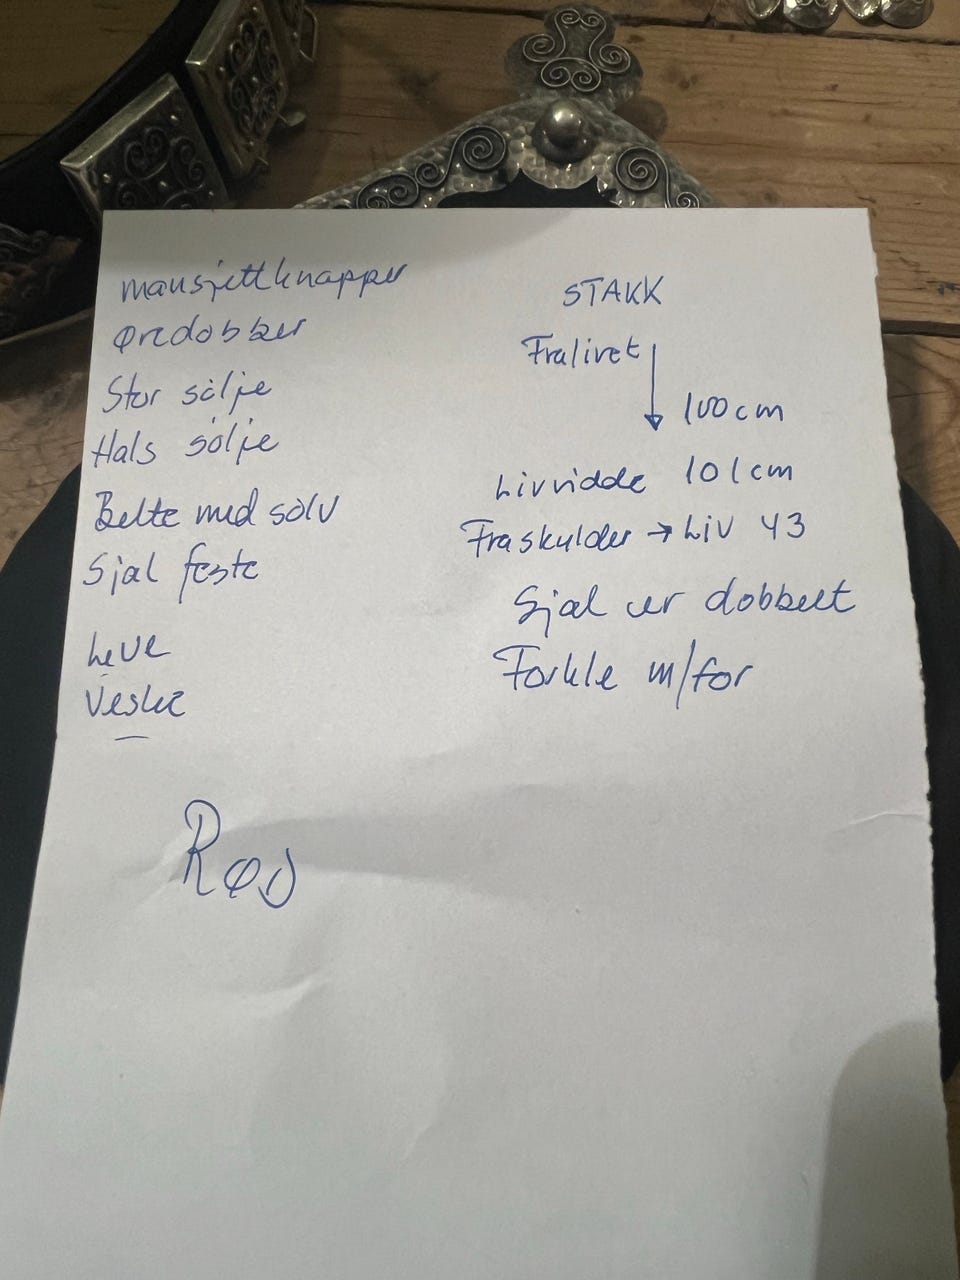 mansjettknapper
Øredobber
Stor sølje
Hals sølje
Belte med sølv
Sjal feste
Leve
Veske
Rød
STAKK
Fra livet
100 cm
Livvidde 101 cm
Fra skulder → Liv 43
Sjal er dobbelt
Forkle m/for